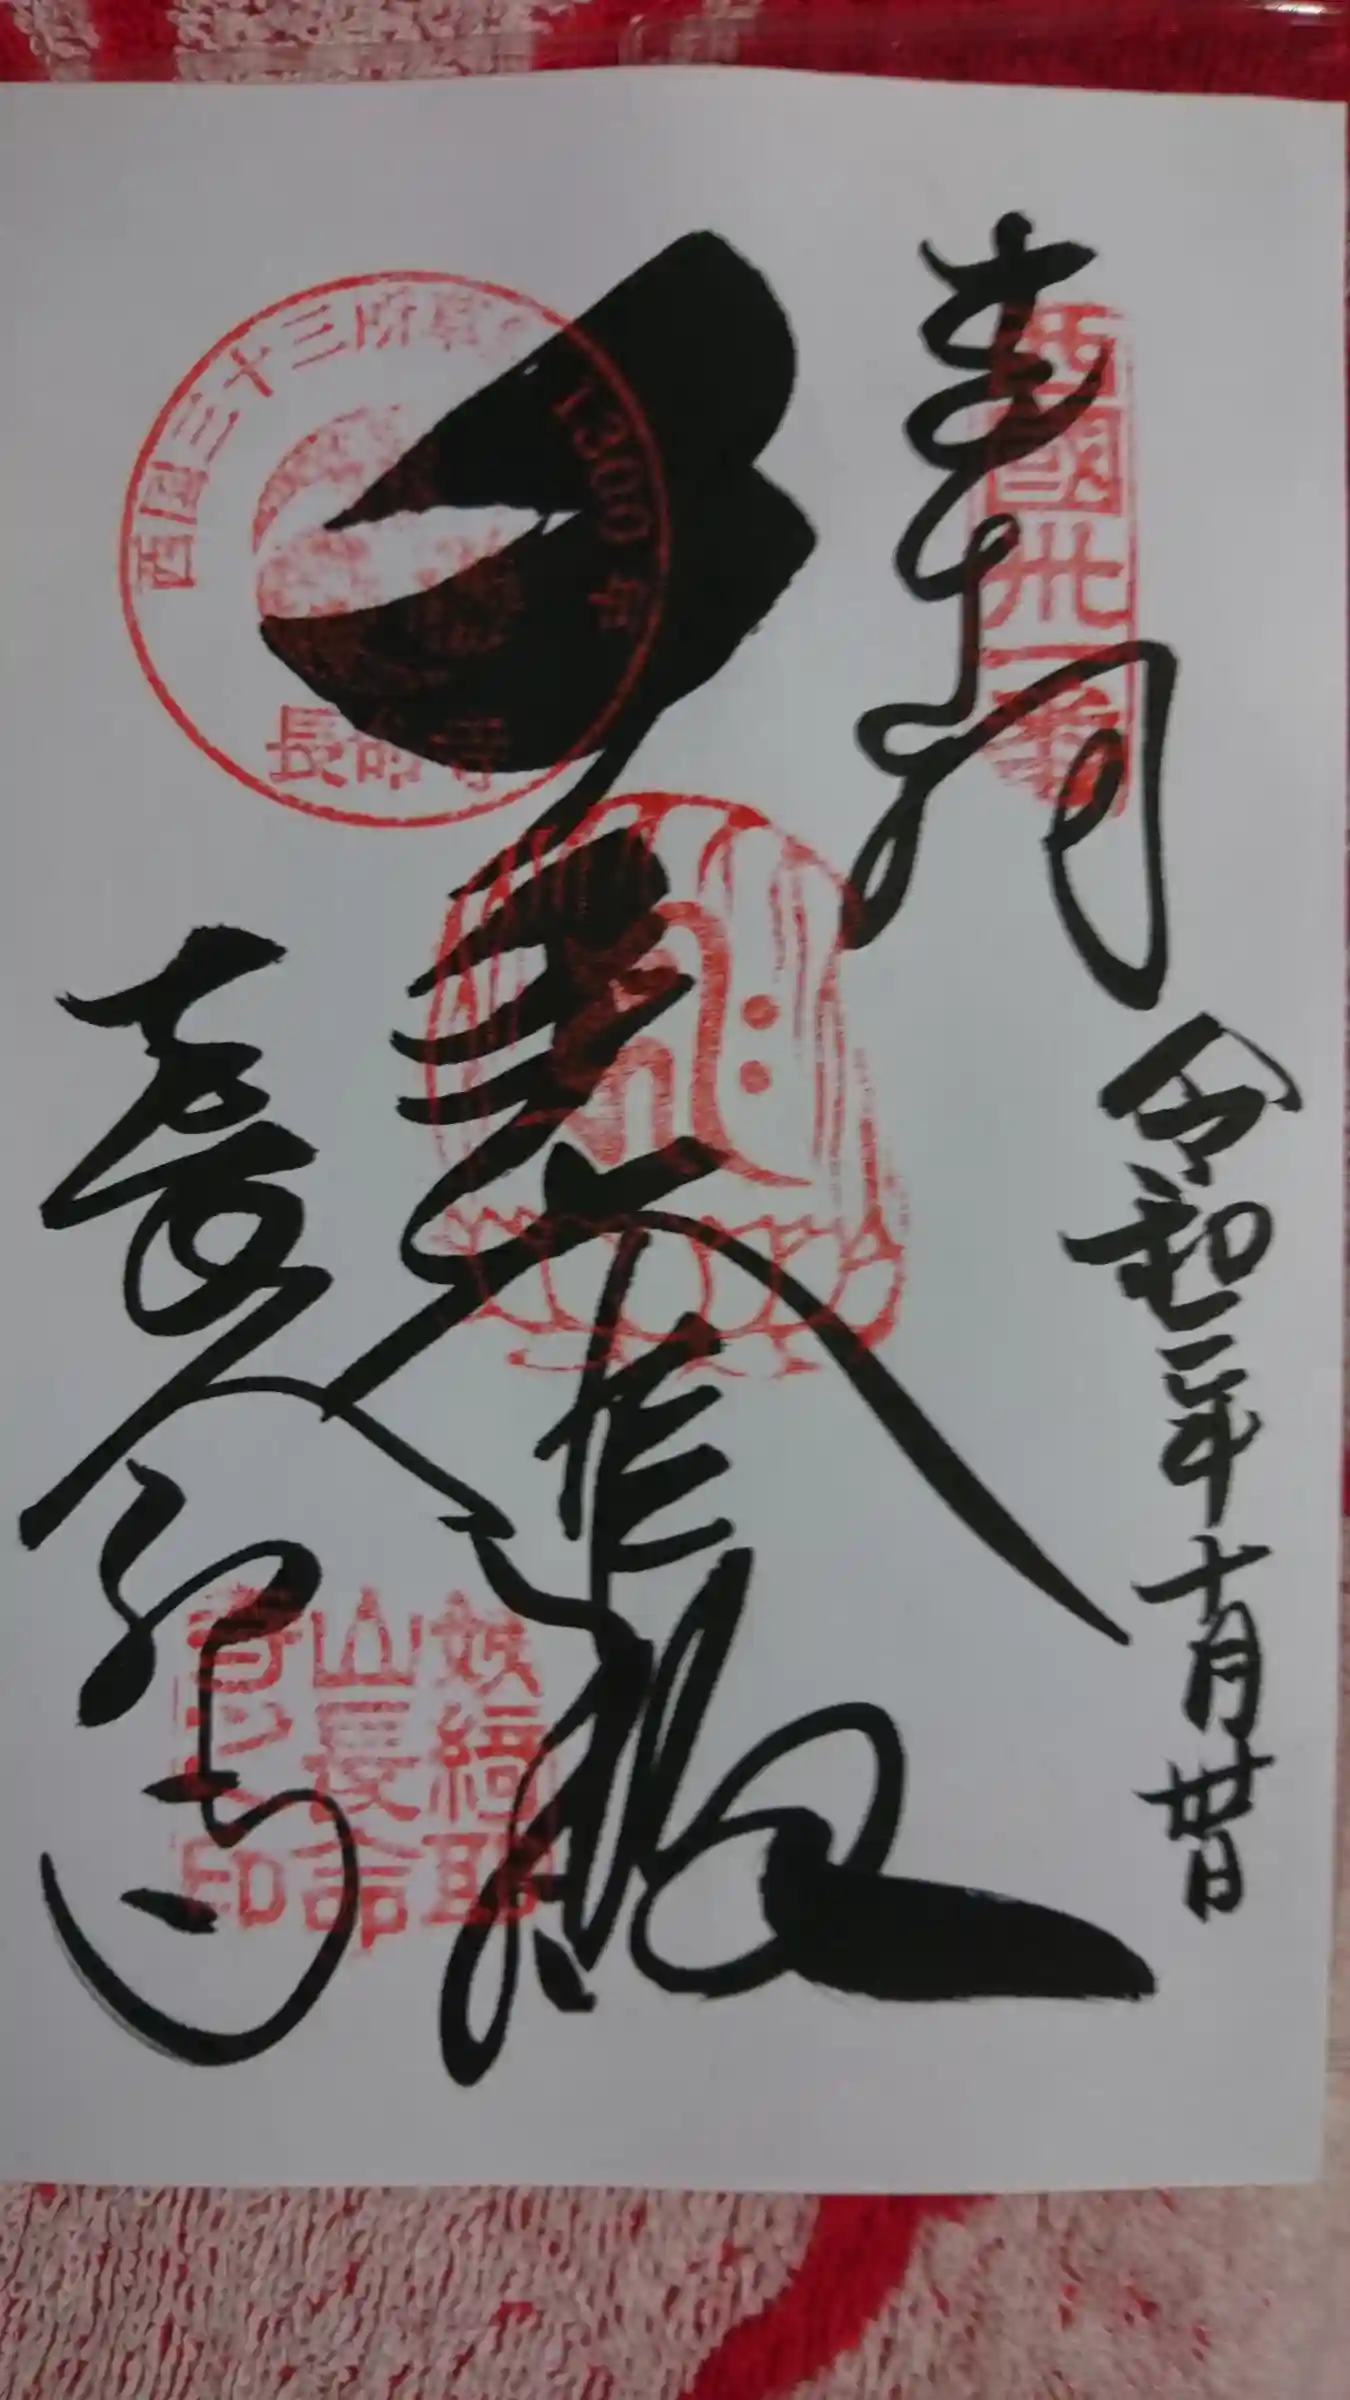 奉拝
西國卅一番
令和二年十月廿日
大悲殿
西国三十三所草創1300年
長命寺
長命寺
姨綺耶
山長命
寺之印